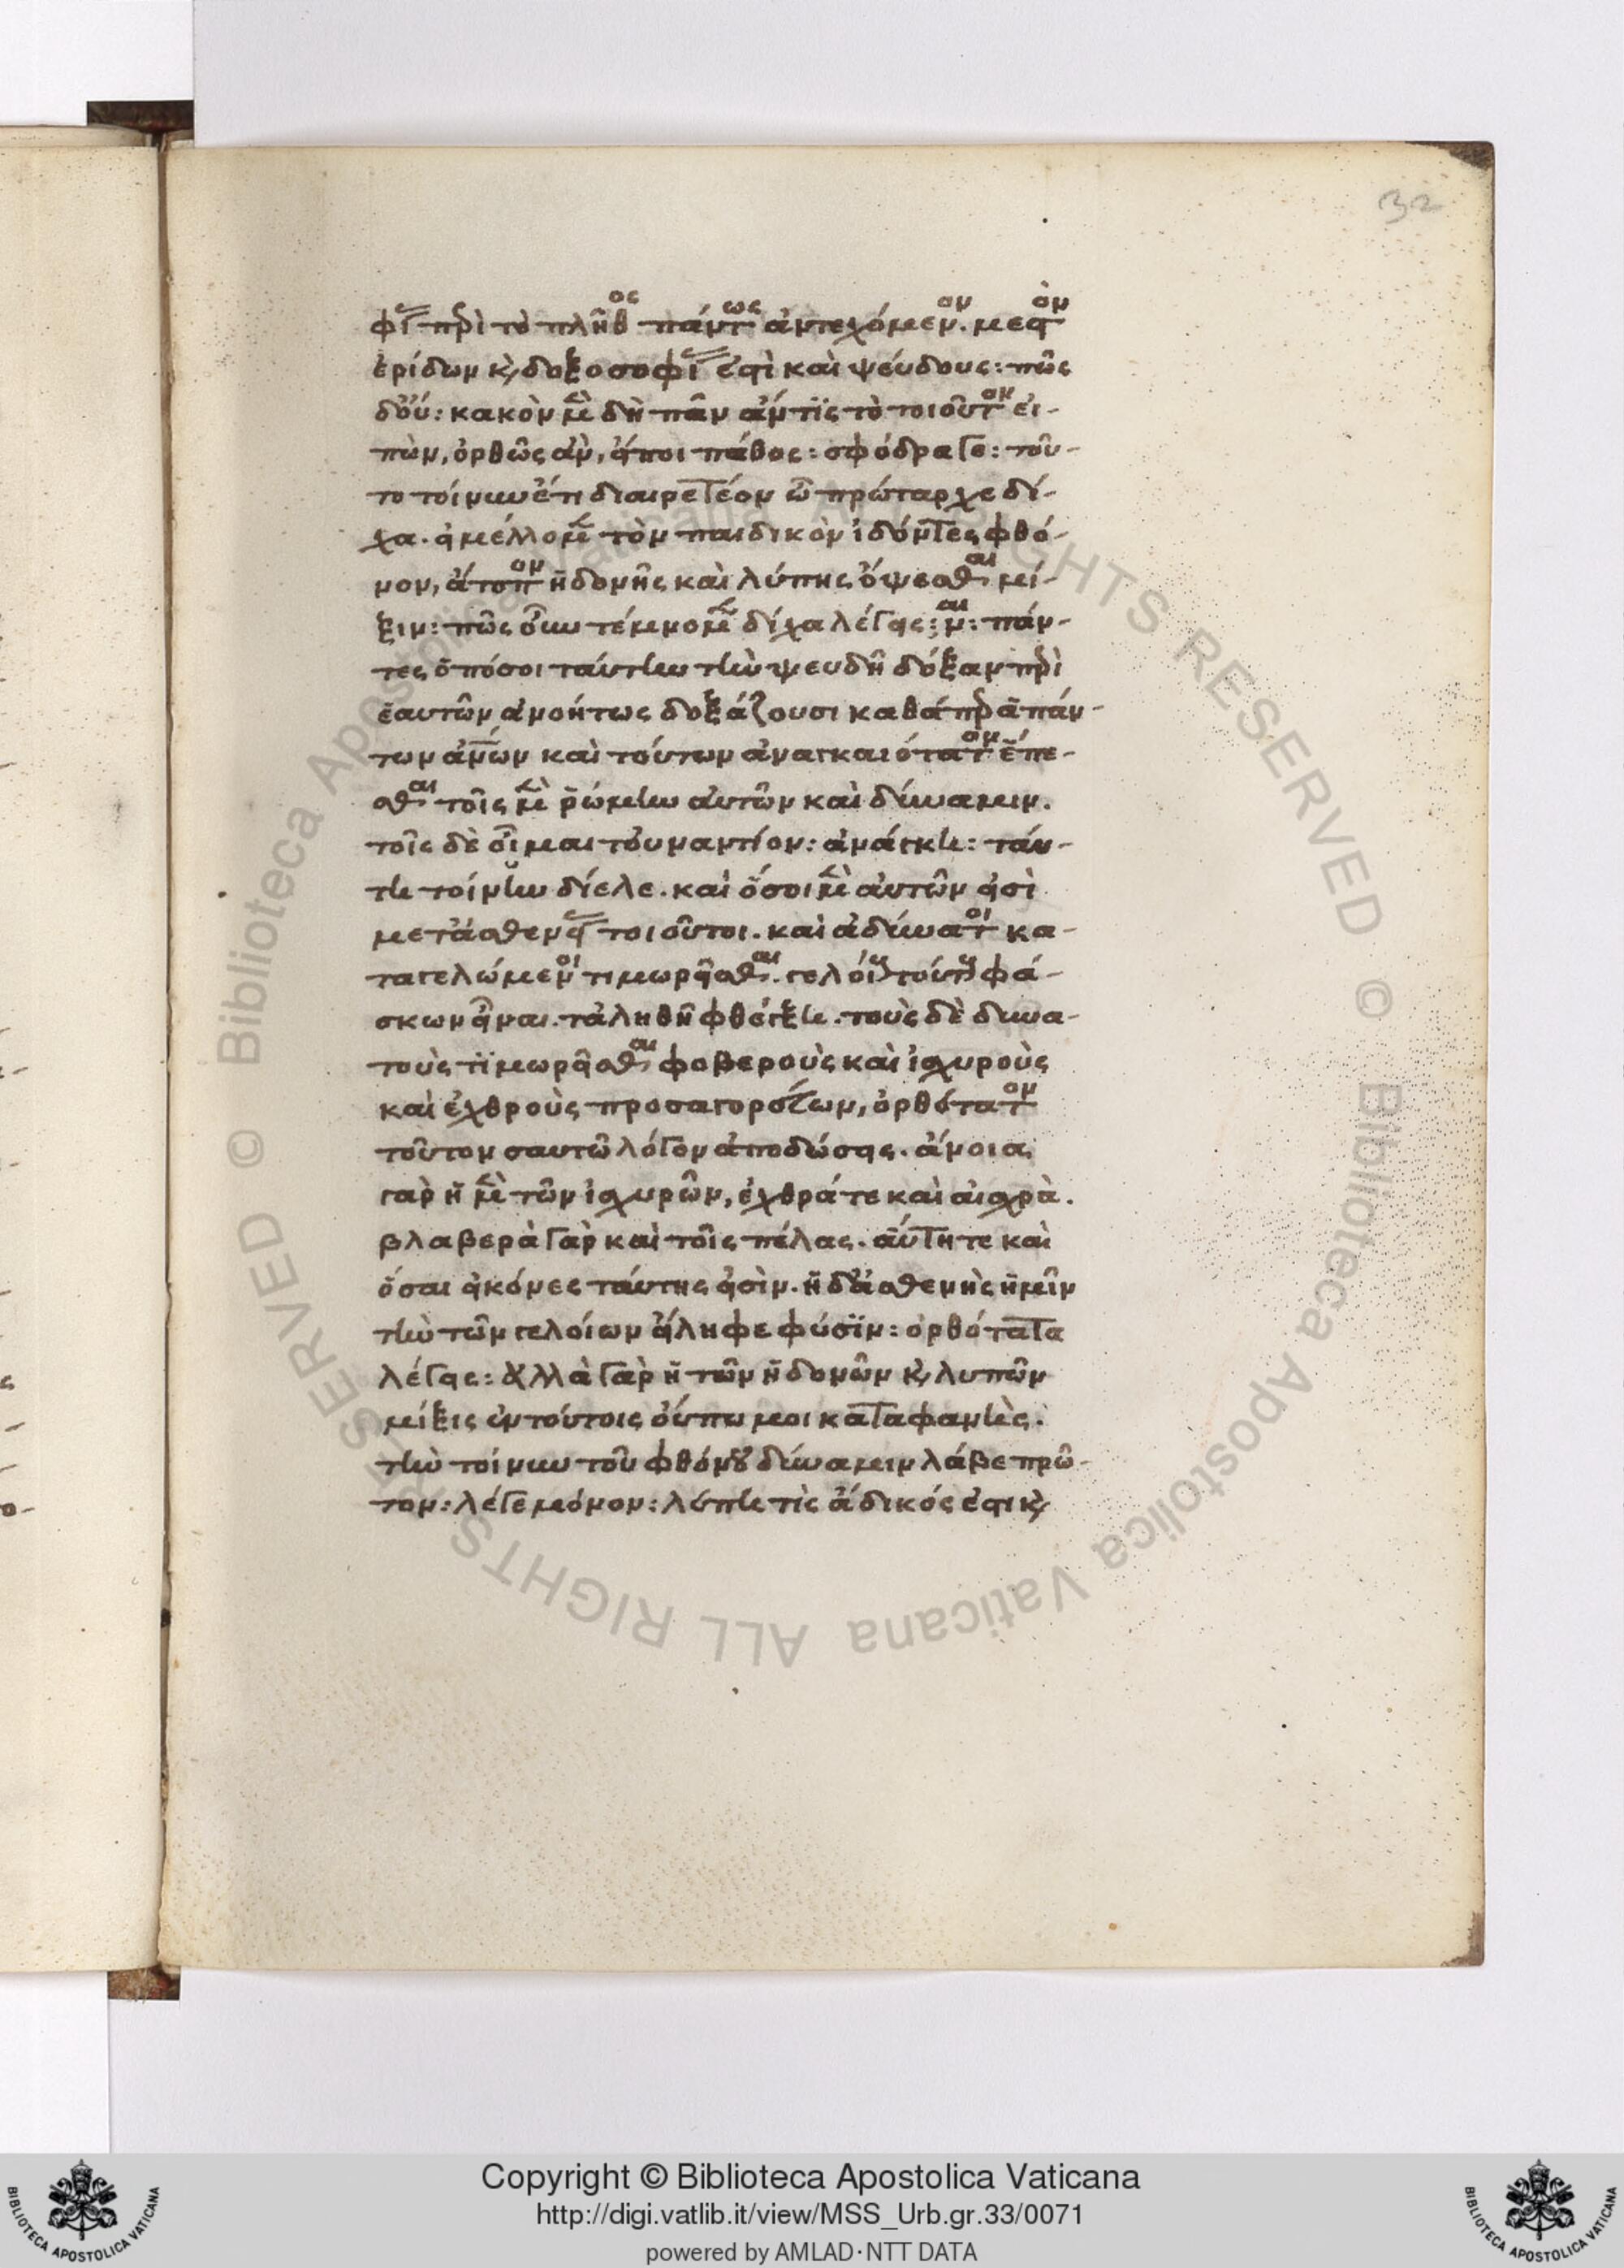 φίας περὶ τὸ πλῆθος πάντως ἀντεχόμενον. μεστὸν
ἐρίδων καὶ δοξοσοφίας ἐστὶ καὶ ψεύδους: πῶς
δ’ οὔ: κακὸν μὲν δὴ πᾶν ἄν τϊς τὸ τοιοῦτον εἰ-
πὼν, ὀρθῶς ἂν, εἴποι πάθος: σφόδρα γε: τοῦ-
το τοίνυν ἔτι διαιρετέον ὦ πρώταρχε δί-
χα. εἰ μέλλομεν τὸν παιδικὸν ἰδόντες φθό-
νον, ἄτοπον ἡδονῆς καὶ λύπης ὄψεσθαι μεί-
ξιν: πῶς οὖν τέμνομεν δίχα λέγεις: ναι: πάν-
τες ὁπόσοι ταύτην τὴν ψευδῆ δόξαν περὶ
ἑαυτῶν ἀνοήτως δοξάζουσι καθάπερ ἁπάν-
των ἀνθρώπων καὶ τούτων ἀναγκαιότατον ἕπε-
σθαι τοῖς μὲν ῥώμην αὐτῶν καὶ δύναμιν.
τοῖς δὲ οἶμαι τοὐναντίον: ἀνάγκη: ταύ-
τη τοίνυν δίελε. καὶ ὅσοι μὲν αὐτῶν εἰσὶ
μετ’ ἀσθενείας τοιοῦτοι. καὶ ἀδύνατοι κα-
ταγελώμενοι τιμωρεῖσθαι. γελοίους τούτους φά-
σκων εἶναι. τἀληθῆ φθέγξη. τοὺς δὲ δυνα-
τοὺς τϊμωρεῖσθαι φοβεροὺς καὶ ἰσχυροὺς
καὶ ἐχθροὺς προσαγορεύων, ὀρθότατον
τοῦτον σαυτῶ λόγον ἀποδώσεις. ἄνοια
γὰρ ἡ μὲν τῶν ἰσχυρῶν, ἐχθρά τε καὶ αἰσχρὰ.
βλαβερὰ γὰρ καὶ τοῖς πέλας. αὕτη τε καὶ
ὅσαι εἰκόνες ταύτης εἰσὶν. ἡ δ’ ἀσθενὴς ἡμῖν
τὴν τῶν γελοίων εἴληφε φύσϊν: ὀρθότατα
λέγεις: ἀλλὰ γὰρ ἡ τῶν ἡδονῶν καὶ λυπῶν
μείξις ἐν τούτοις οὔπω μοι καταφανὴς.
τὴν τοίνυν τοῦ φθόνου δύναμιν λάβε πρῶ-
τον: λέγε μόνον: λύπη τὶς ἄδικός ἐστι καὶ
32
Copyright © Biblioteca Apostolica Vaticana
http://digi.vatlib.it/view/MSS_Urb.gr.33/0071
powered by AMLAD·NTT DATA